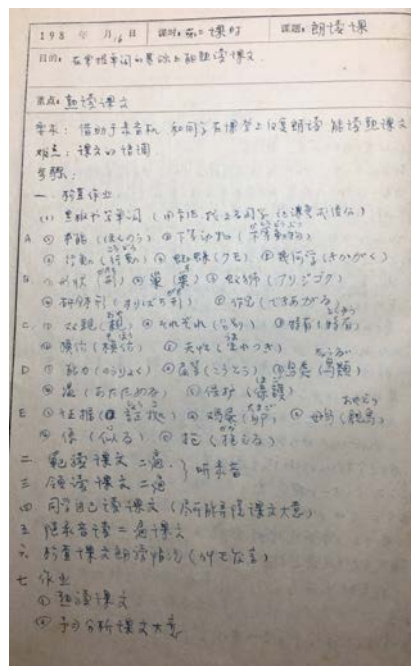 198 年 月16日 课时：第二课时 课题：朗读课
目的：在掌握单词的基础上能熟读课文.
重点：熟读课文
要求：借助于录音机 和同学在课堂上反复朗读 能读熟课文
难点：课文的语调
步骤：
一. 检查作业
A ① 本能（ほんのう） ② 下等动物（下等動物）
③ 行动（行動） ④ 蜘蛛（クモ） ⑤ 几何学（きかがく）
B. ① 形状（形） ② 巢（巣） ③ 蚁狮（アリジゴク）
④ 研钵形（すりばち形） ⑤ 作完（できあがる）
C. ① 父親（親） ② それぞれ（各別） ③ 特有（特有）
④ 模仿（模倣） ⑤ 天性（生れつき）
D ① 能力（のうりょく） ② 高等（こうとう） ③ 鸟类（鳥類）
④ 温（あたためる） ⑤ 保护（保護）
E ① 证据（証拠） ② 鸡蛋（卵） ③ 母鸟（親鳥）
④ 像（似る） ⑤ 抱（抱える）
二 范读课文二遍. } 听录音
三 领读课文二遍
四 同学自己读课文（尽可能弄懂课文大意）
五 跟录音读二遍课文
六 检查课文朗读情况
七 作业
① 熟读课文
② 予习分析课文大意